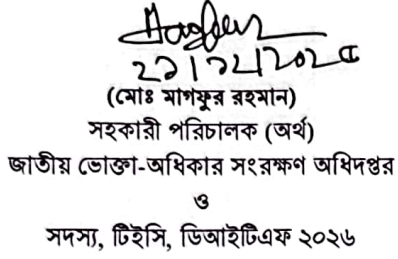 ২১/১২/২০২৫
(মোঃ মাগফুর রহমান)
সহকারী পরিচালক (অর্থ)
জাতীয় ভোক্তা-অধিকার সংরক্ষণ অধিদপ্তর
ও
সদস্য, টিইসি, ডিআইটিএফ ২০২৬